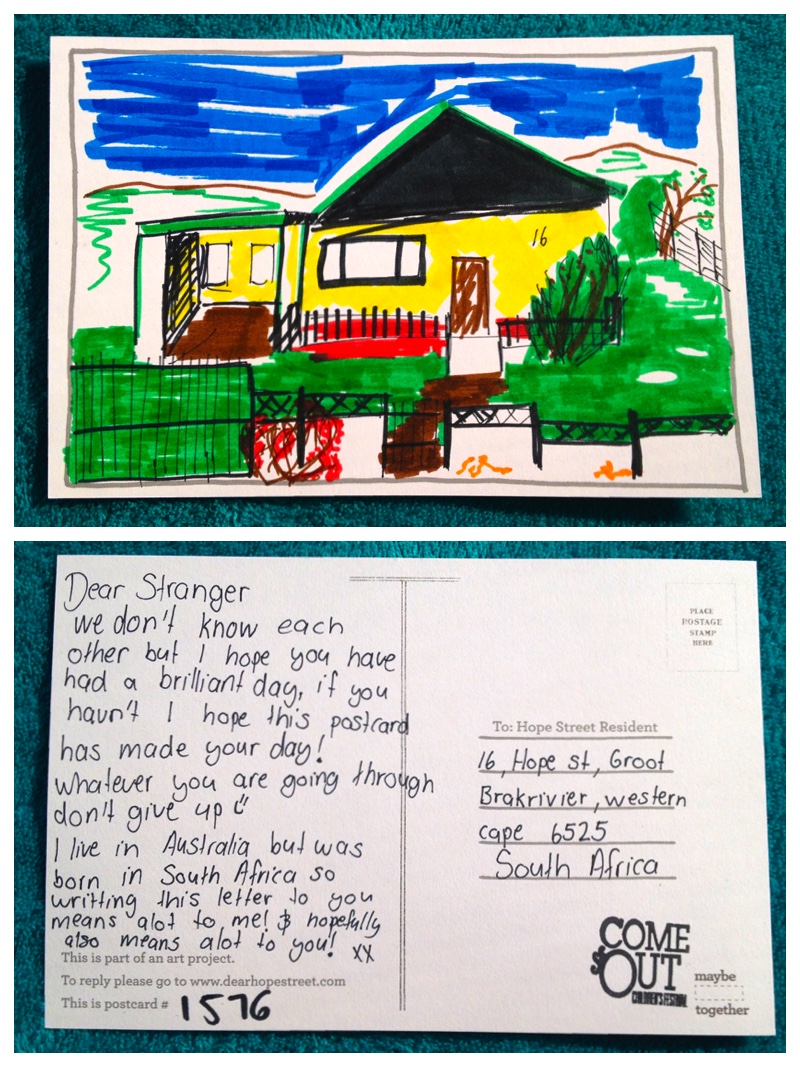 16
Dear Stranger
we don't know each
other but I hope you have
had a brilliant day, if you
havn't I hope this postcard
has made your day!
whatever you are going through
don't give up
I live in Australia but was
born in South Africa so
writting this letter to you
means alot to me! & hopefully
also means alot to you! xx
This is part of an art project.
To reply please go to www.dearhopestreet.com
This is postcard # 1576
PLACE
POSTAGE
STAMP
HERE
To: Hope Street Resident
16, Hope st, Groot
Brakrivier, western
cape 6525
South Africa
COME
OUT
CHILDREN'S FESTIVAL
maybe
together